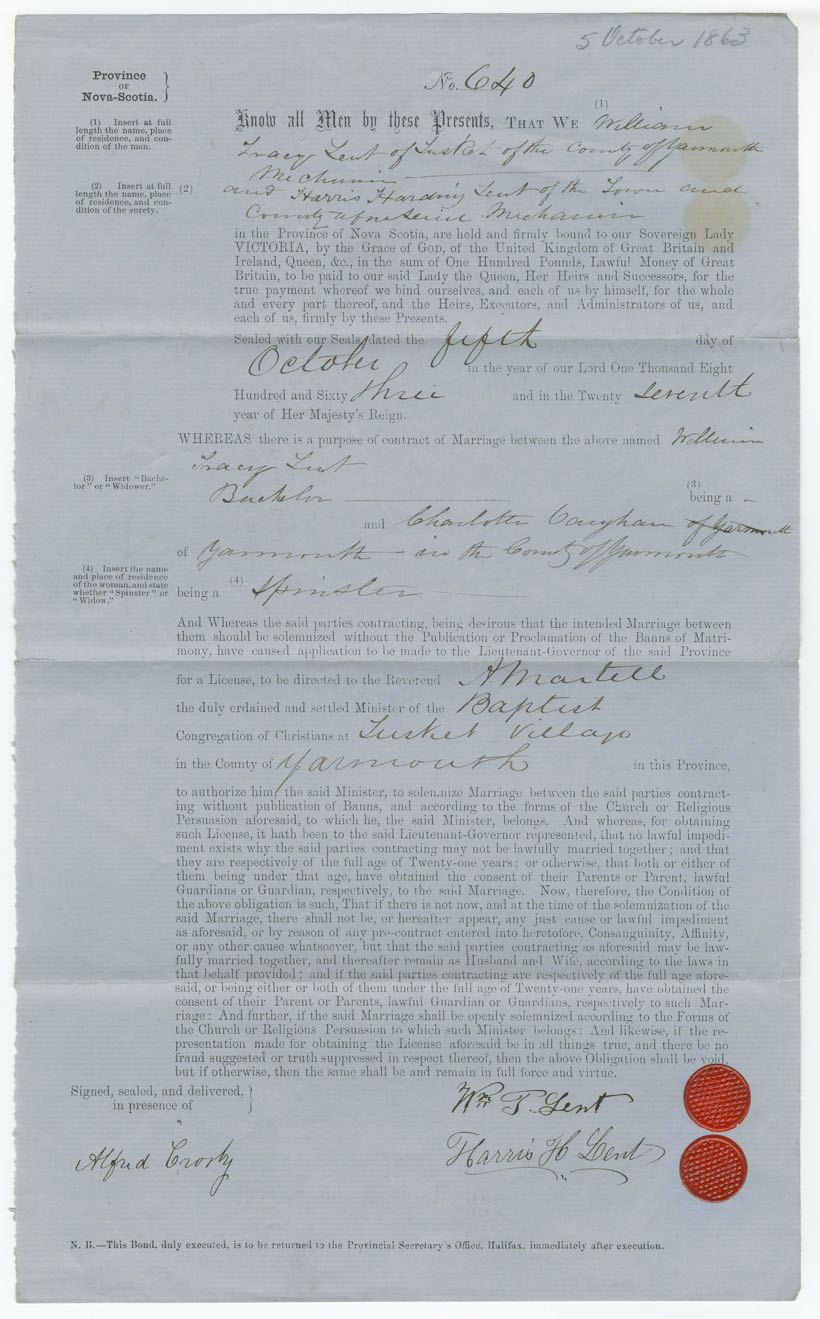 5 October 1863
Province
OF
Nova-Scotia.
No. 640
(1) Insert at full
length the name, place
of residence, and con-
dition of the man.
(1)
Know all Men by these Presents, THAT WE William
Tracy Lent of Tusket of the County of Yarmouth
Mechanic
(2) Insert at full
length the name, place
of residence, and con-
dition of the surety.
(2) and Harris Harding Lent of the Town and
County aforesaid Mechanic
in the Province of Nova Scotia, are held and firmly bound to our Sovereign Lady
VICTORIA, by the Grace of GOD, of the United Kingdom of Great Britain and
Ireland, Queen, &c., in the sum of One Hundred Pounds, Lawful Money of Great
Britain, to be paid to our said Lady the Queen, Her Heirs and Successors, for the
true payment whereof we bind ourselves, and each of us by himself, for the whole
and every part thereof, and the Heirs, Executors, and Administrators of us, and
each of us, firmly by these Presents.
Sealed with our Seals, dated the fifth day of
October in the year of our Lord One Thousand Eight
Hundred and Sixty three and in the Twenty seventh
year of Her Majesty's Reign.
WHEREAS there is a purpose of contract of Marriage between the above named William
Tracy Lent
(3) Insert "Bache-
lor" or "Widower."
(3)
Bachelor being a
and Charlotte Vaughan of Yarmouth
of Yarmouth in the County of Yarmouth
(4) Insert the name
and place of residence
of the woman, and state
whether "Spinster" or
"Widow."
being a (4) Spinster
And Whereas the said parties contracting, being desirous that the intended Marriage between
them should be solemnized without the Publication or Proclamation of the Banns of Matri-
mony, have caused application to be made to the Lieutenant-Governor of the said Province
for a License, to be directed to the Reverend A Martell
the duly ordained and settled Minister of the Baptist
Congregation of Christians at Tusket Village
in the County of Yarmouth in this Province,
to authorize him, the said Minister, to solemnize Marriage between the said parties contract-
ing without publication of Banns, and according to the forms of the Church or Religious
Persuasion aforesaid, to which he, the said Minister, belongs. And whereas, for obtaining
such License, it hath been to the said Lieutenant-Governor represented, that no lawful impedi-
ment exists why the said parties contracting may not be lawfully married together; and that
they are respectively of the full age of Twenty-one years; or otherwise, that both or either of
them being under that age, have obtained the consent of their Parents or Parent, lawful
Guardians or Guardian, respectively, to the said Marriage. Now, therefore, the Condition of
the above obligation is such, That if there is not now, and at the time of the solemnization of the
said Marriage, there shall not be, or hereafter appear, any just cause or lawful impediment
as aforesaid, or by reason of any pre-contract entered into heretofore, Consanguinity, Affinity,
or any other cause whatsoever, but that the said parties contracting as aforesaid may be law-
fully married together, and thereafter remain as Husband and Wife, according to the laws in
that behalf provided; and if the said parties contracting are respectively of the full age afore-
said, or being either or both of them under the full age of Twenty-one years, have obtained the
consent of their Parent or Parents, lawful Guardian or Guardians, respectively to such Mar-
riage: And further, if the said Marriage shall be openly solemnized according to the Forms of
the Church or Religious Persuasion to which such Minister belongs: And likewise, if the re-
presentation made for obtaining the License aforesaid be in all things true, and there be no
fraud suggested or truth suppressed in respect thereof, then the above Obligation shall be void,
but if otherwise, then the same shall be and remain in full force and virtue.
Signed, sealed, and delivered,
in presence of
Wm T. Lent
Alfred Crosby
Harris H Lent
N. B.—This Bond, duly executed, is to be returned to the Provincial Secretary's Office, Halifax, immediately after execution.